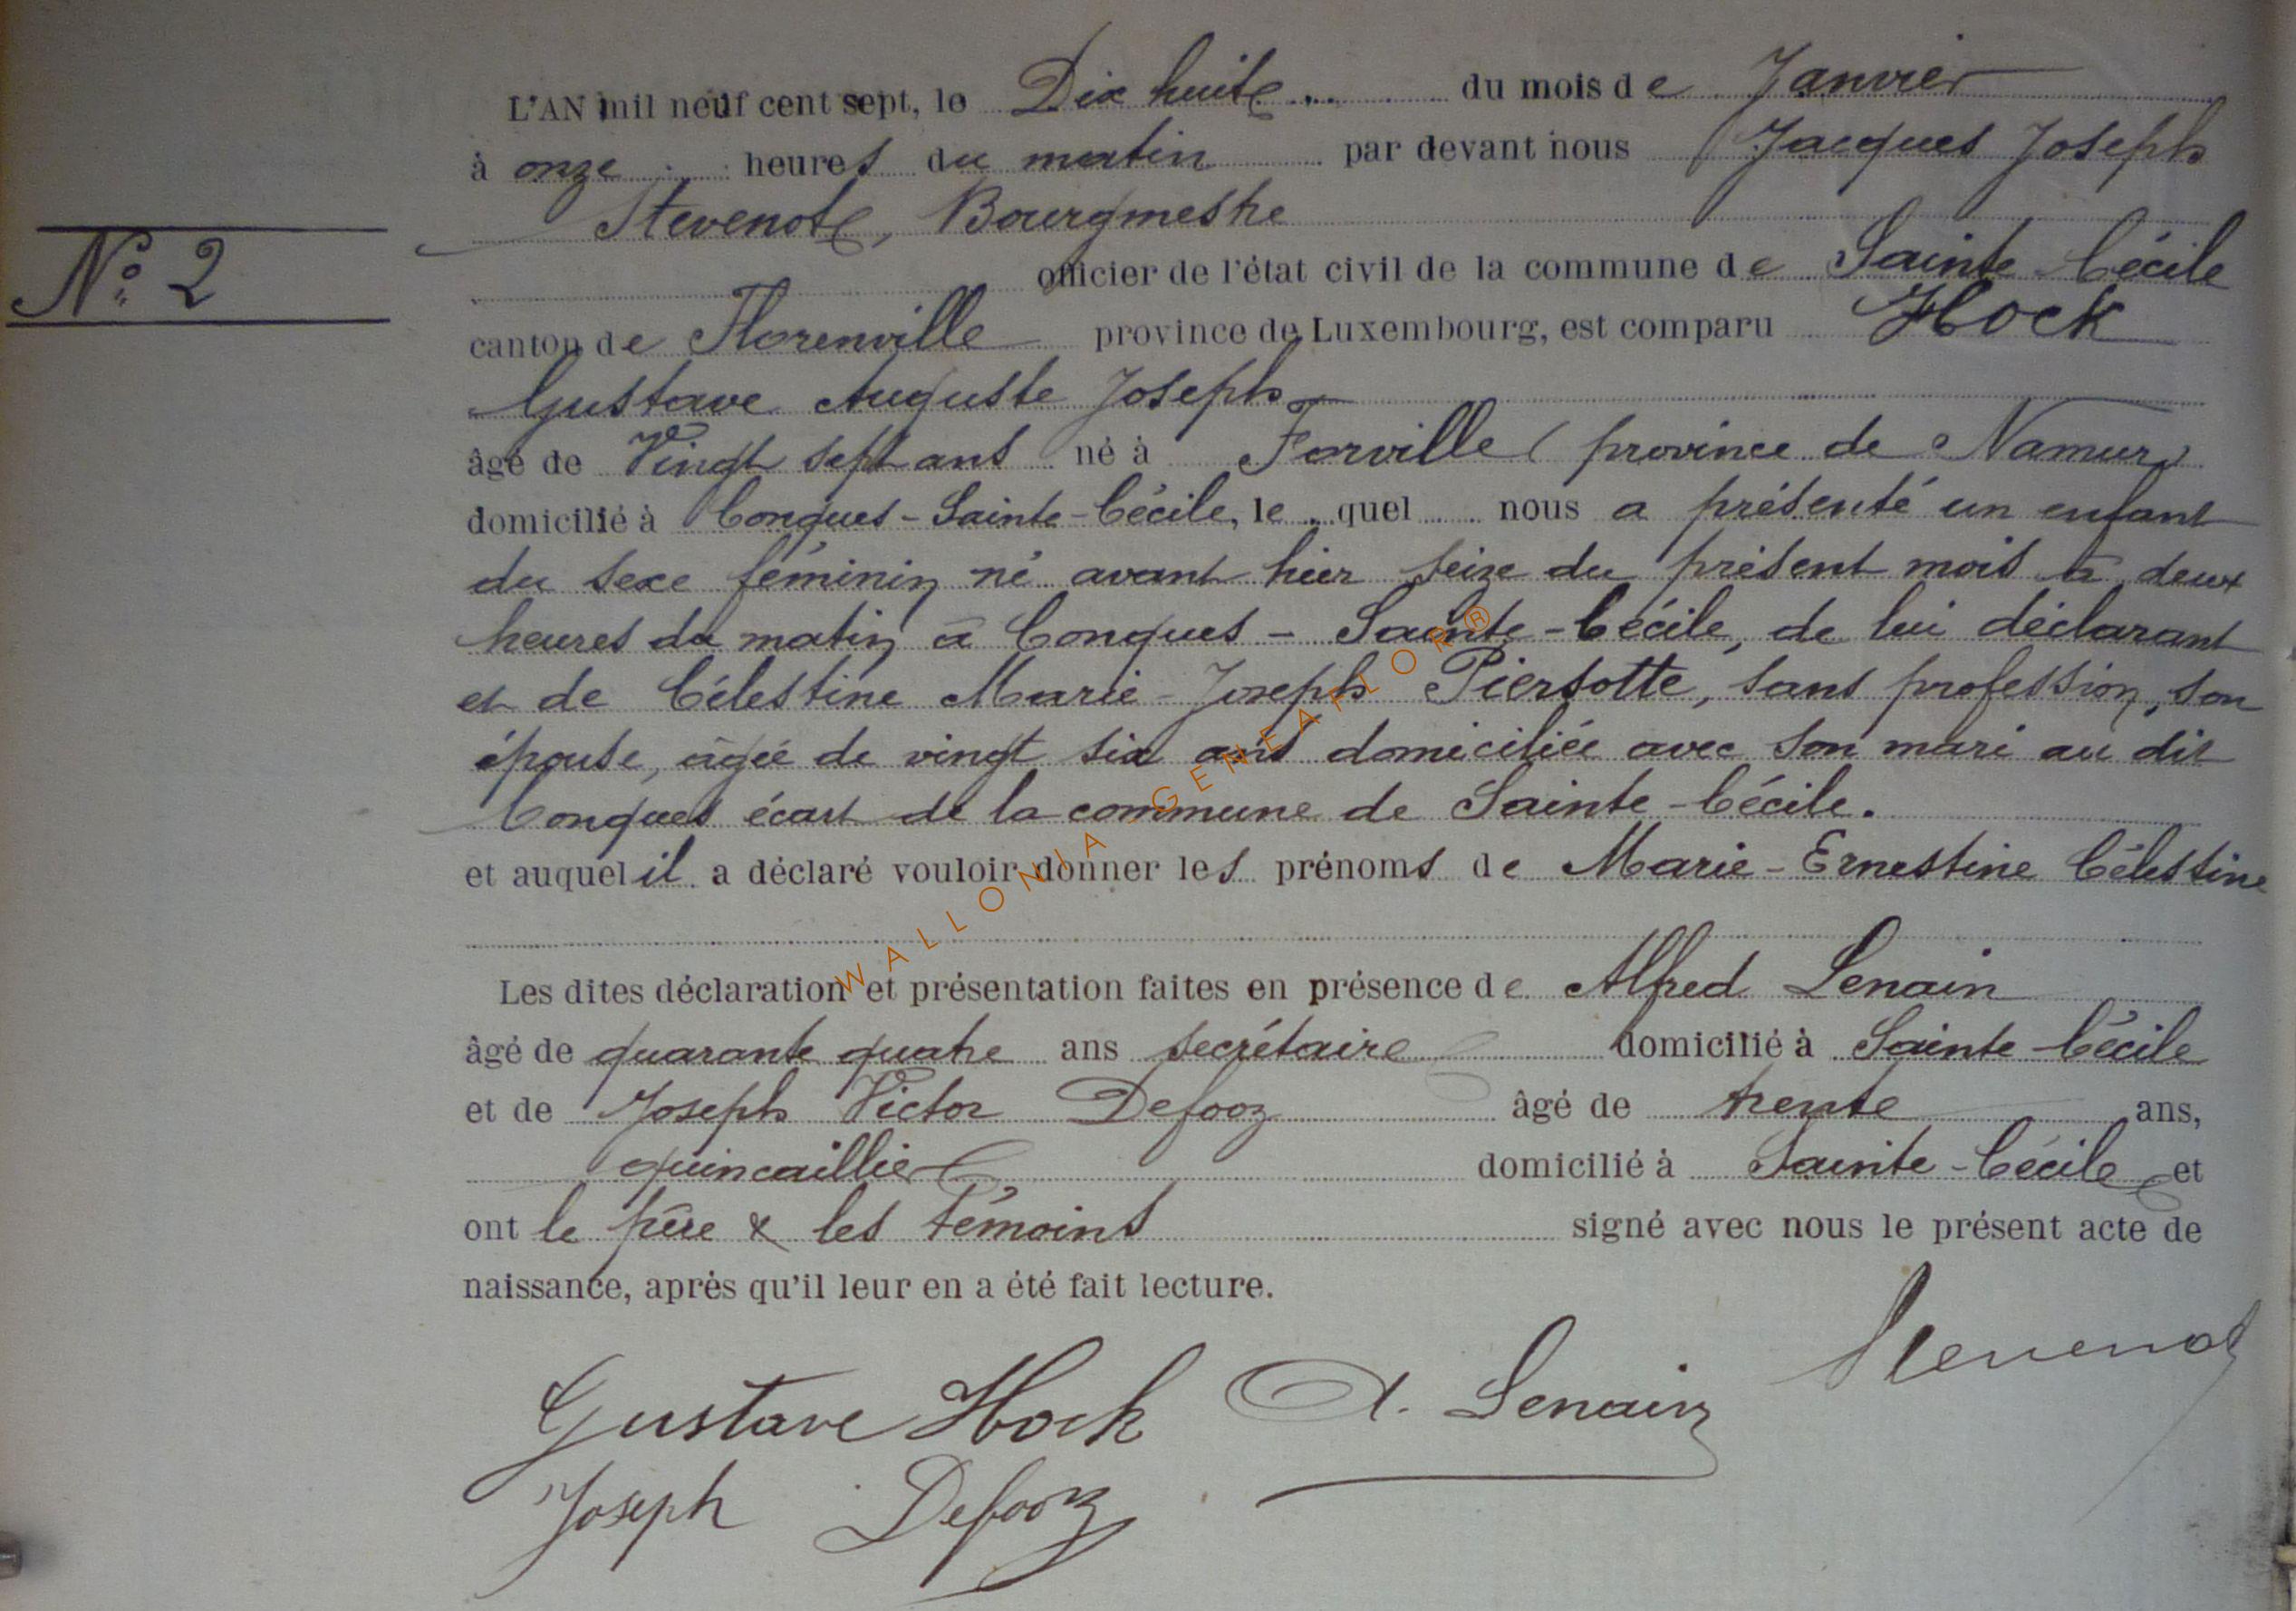 L'AN mil neuf cent sept, le Dix huit du mois de Janvier
à onze heures du matin par devant nous Jacques Joseph
Stevenot, Bourgmestre
N° 2
officier de l'état civil de la commune de Sainte Cécile
canton de Florenville province de Luxembourg, est comparu Hock
Gustave Auguste Joseph
âgé de Vingt sept ans né à Forville (province de Namur)
domicilié à Conques-Sainte-Cécile, le quel nous a présenté un enfant
du sexe féminin né avant hier seize du présent mois à deux
heures du matin à Conques - Sainte-Cécile, de lui déclarant
et de Célestine Marie-Joseph Piersotte, sans profession, son
épouse, âgée de vingt six ans domiciliée avec son mari au dit
Conques écart de la commune de Sainte-Cécile.
et auquel il a déclaré vouloir donner les prénoms de Marie-Ernestine Célestine
Les dites déclaration et présentation faites en présence de Alfred Lenain
âgé de quarante quatre ans secrétaire domicilié à Sainte Cécile
et de Joseph Victor Defooz âgé de trente ans,
quincaillier domicilié à Sainte-Cécile et
ont le père & les témoins signé avec nous le présent acte de
naissance, après qu'il leur en a été fait lecture.
Gustave Hock A. Lenain Stevenot
Joseph Defooz
WALLONIA GENEAFLOR®